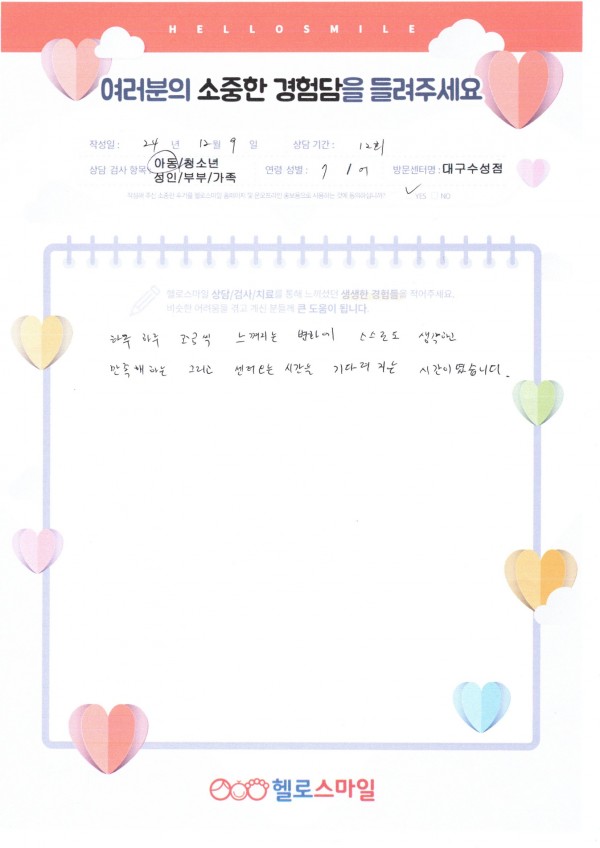 HELLOSMILE
여러분의 소중한 경험담을 들려주세요
작성일 : 24 년 12월 9 일 상담 기간 : 12회
상담 검사 항목 : 아동/청소년 연령 성별 : 7 / 여 방문센터명 : 대구수성점
성인/부부/가족
작성해 주신 소중한 후기를 헬로스마일 홈페이지 및 온오프라인 홍보용으로 사용하는 것에 동의하십니까? YES NO
헬로스마일 상담/검사/치료를 통해 느끼셨던 생생한 경험들을 적어주세요.
비슷한 어려움을 겪고 계신 분들께 큰 도움이 됩니다.
하루 하루 조금씩 느껴지는 변화에 스스로도
만족해 하는 그리고 센터 오는 시간을 기다려 지는 시간이였습니다.
헬로스마일